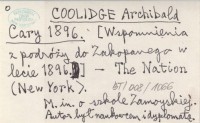 COOLIDGE Archibald
Cary 1896. [Wspomnienia
z podróży do Zakopanego w
lecie 1896.] — The Nation
(New York).
M. in. o szkole Zamoyskiej.
Autor był naukowcem i dyplomatą.